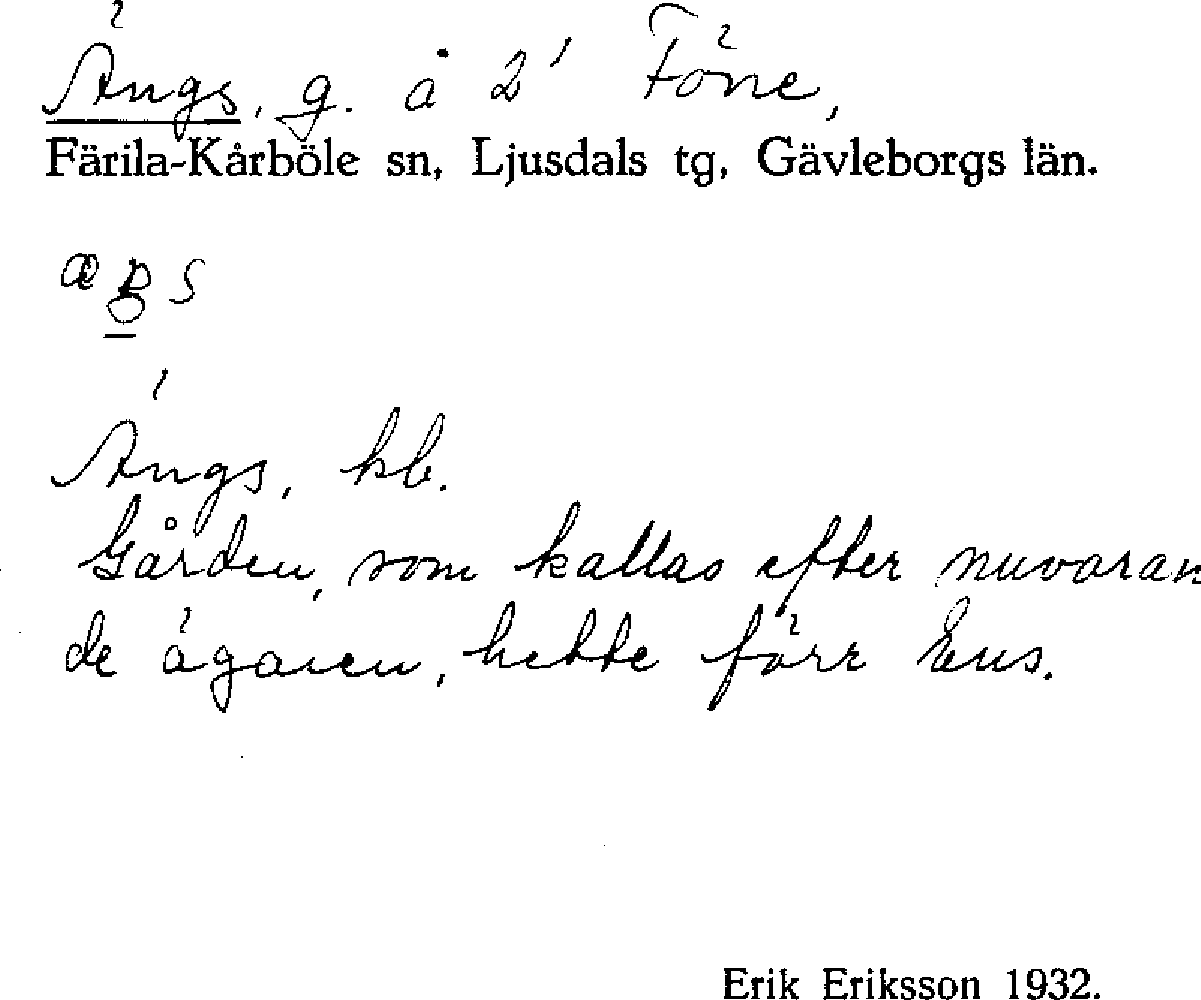 Ängs, g. å 2' Föne,
Färila-Kårböle sn, Ljusdals tg, Gävleborgs län.
Ängs, kb.
Gården, som kallas efter nuvaran
de ägaren, hette förr Ens.
Erik Eriksson 1932.